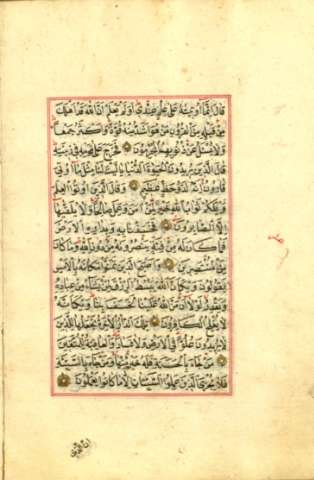 قَالَ اِنَّمَٓا اُو۫تٖيتُهُ عَلٰى عِلْمٍ عِنْدٖي اَوَلَمْ يَعْلَمْ اَنَّ اللّٰهَ قَدْ اَهْلَكَ
مِنْ قَبْلِهٖ مِنَ الْقُرُونِ مَنْ هُوَ اَشَدُّ مِنْهُ قُوَّةً وَاَكْثَرُ جَمْعًا
وَلَا يُسْئَلُ عَنْ ذُنُوبِهِمُ الْمُجْرِمُونَ فَخَرَجَ عَلٰى قَوْمِهٖ فٖي زٖينَتِهٖ
قَالَ الَّذٖينَ يُرٖيدُونَ الْحَيٰوةَ الدُّنْيَا يَا لَيْتَ لَنَا مِثْلَ مَٓا اُو۫تِيَ
قَارُونُ اِنَّهُ لَذُو حَظٍّ عَظٖيمٍ وَقَالَ الَّذٖينَ اُو۫تُوا الْعِلْمَ
وَيْلَكُمْ ثَوَابُ اللّٰهِ خَيْرٌ لِمَنْ اٰمَنَ وَعَمِلَ صَالِحًا وَلَا يُلَقّٰيهَٓا
اِلَّا الصَّابِرُونَ فَخَسَفْنَا بِهٖ وَبِدَارِهِ الْاَرْضَ
فَمَا كَانَ لَهُ مِنْ فِئَةٍ يَنْصُرُونَهُ مِنْ دُونِ اللّٰهِ وَمَا كَانَ
مِنَ الْمُنْتَصِرٖينَ وَاَصْبَحَ الَّذٖينَ تَمَنَّوْا مَكَانَهُ بِالْاَمْسِ
يَقُولُونَ وَيْكَاَنَّ اللّٰهَ يَبْسُطُ الرِّزْقَ لِمَنْ يَشَٓاءُ مِنْ عِبَادِهٖ
وَيَقْدِرُ لَوْلَٓا اَنْ مَنَّ اللّٰهُ عَلَيْنَا لَخَسَفَ بِنَا وَيْكَاَنَّهُ
لَا يُفْلِحُ الْكَافِرُونَ تِلْكَ الدَّارُ الْاٰخِرَةُ نَجْعَلُهَا لِلَّذٖينَ
لَا يُرٖيدُونَ عُلُوًّا فِي الْاَرْضِ وَلَا فَسَادًا وَالْعَاقِبَةُ لِلْمُتَّقٖينَ
مَنْ جَٓاءَ بِالْحَسَنَةِ فَلَهُ خَيْرٌ مِنْهَا وَمَنْ جَٓاءَ بِالسَّيِّئَةِ
فَلَا يُجْزَى الَّذٖينَ عَمِلُوا السَّيِّئَاتِ اِلَّا مَا كَانُوا يَعْمَلُونَ
ان الذي